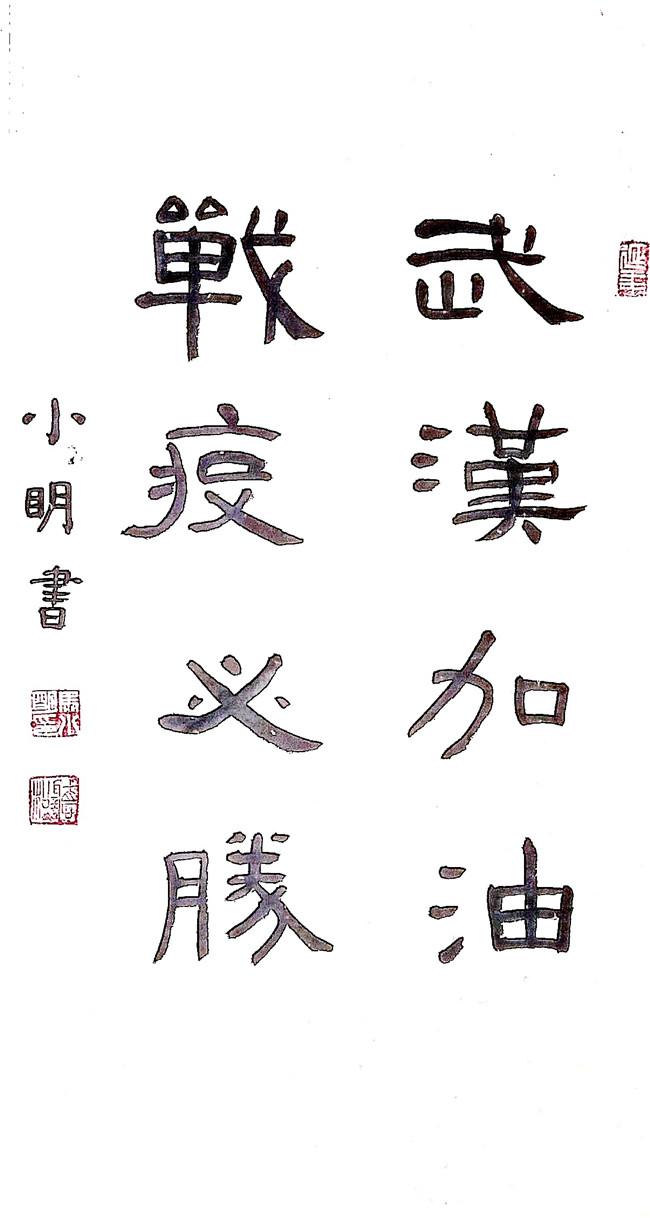 武漢加油
戰疫必勝
小明書